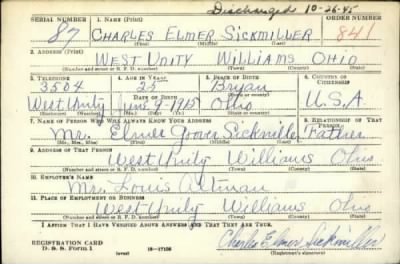 Discharged 10-26-45
SERIAL NUMBER 1. NAME (Print) ORDER NUMBER
87 CHARLES ELMER SICKMILLER 841
(First) (Middle) (Last)
2. ADDRESS (Print)
WEST UNITY WILLIAMS OHIO
(Number and street or R. F. D. number) (Town) (County) (State)
3. TELEPHONE 4. AGE IN YEARS 5. PLACE OF BIRTH 6. COUNTRY OF CITIZENSHIP
3504 25 Bryan
DATE OF BIRTH (Town or county)
West Unity June 9-1915 Ohio U.S.A
(Exchange) (Number) (Mo.) (Day) (Yr.) (State or country)
7. NAME OF PERSON WHO WILL ALWAYS KNOW YOUR ADDRESS 8. RELATIONSHIP OF THAT PERSON
Mr. Elmer Grover Sickmiller Father
(Mr., Mrs., Miss) (First) (Middle) (Last)
9. ADDRESS OF THAT PERSON
West Unity Williams Ohio
(Number and street or R. F. D. number) (Town) (County) (State)
10. EMPLOYER'S NAME
Mr. Louis Altman
11. PLACE OF EMPLOYMENT OR BUSINESS
West Unity Williams Ohio
(Number and street or R. F. D. number) (Town) (County) (State)
I AFFIRM THAT I HAVE VERIFIED ABOVE ANSWERS AND THAT THEY ARE TRUE.
REGISTRATION CARD
D. S. S. Form 1 16-17105 Charles Elmer Sickmiller
(Registrant's signature)